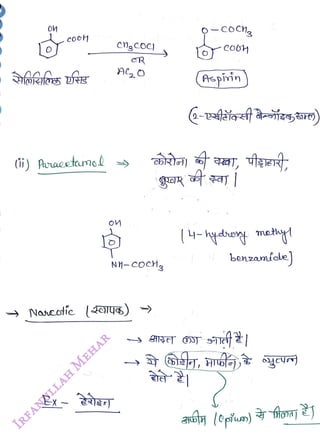 OH
COOH
CH₃COCl
OR
AC₂O
सैलिसिलिक एसिड
O-COCH₃
COOH
Aspirin
(2-एसीटॉक्सी बेन्जोइक अम्ल)
(ii) Paracetamol ⇒ कोरोना की दवा, पीड़ाहारी,
बुखार की दवा |
OH
NH-COCH₃
[4-hydroxy methyl
benzamide]
→ Narcotic (स्वापक) →
→ आदत लग जाती है |
→ ये कोडीन, मार्फीन, के व्युत्पन्न
होते है |
Ex - हेरोइन
अफीम (Opium) से मिलता है |
IRFANULLAH MEHAR